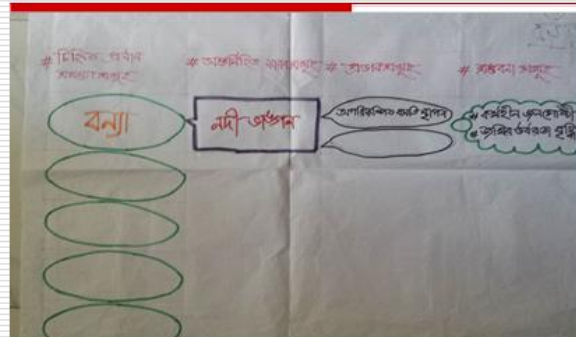 # চিহ্নিত প্রধান
সমস্যাসমূহ
# অন্তর্নিহিত কারণসমূহ
# প্রভাবসমূহ
# সম্ভাবনা সমূহ
বন্যা
নদী ভাঙ্গন
অপরিকল্পিত বসতি স্থাপন
কর্মহীন জনগোষ্ঠী
জমির উর্বরতা বৃদ্ধি